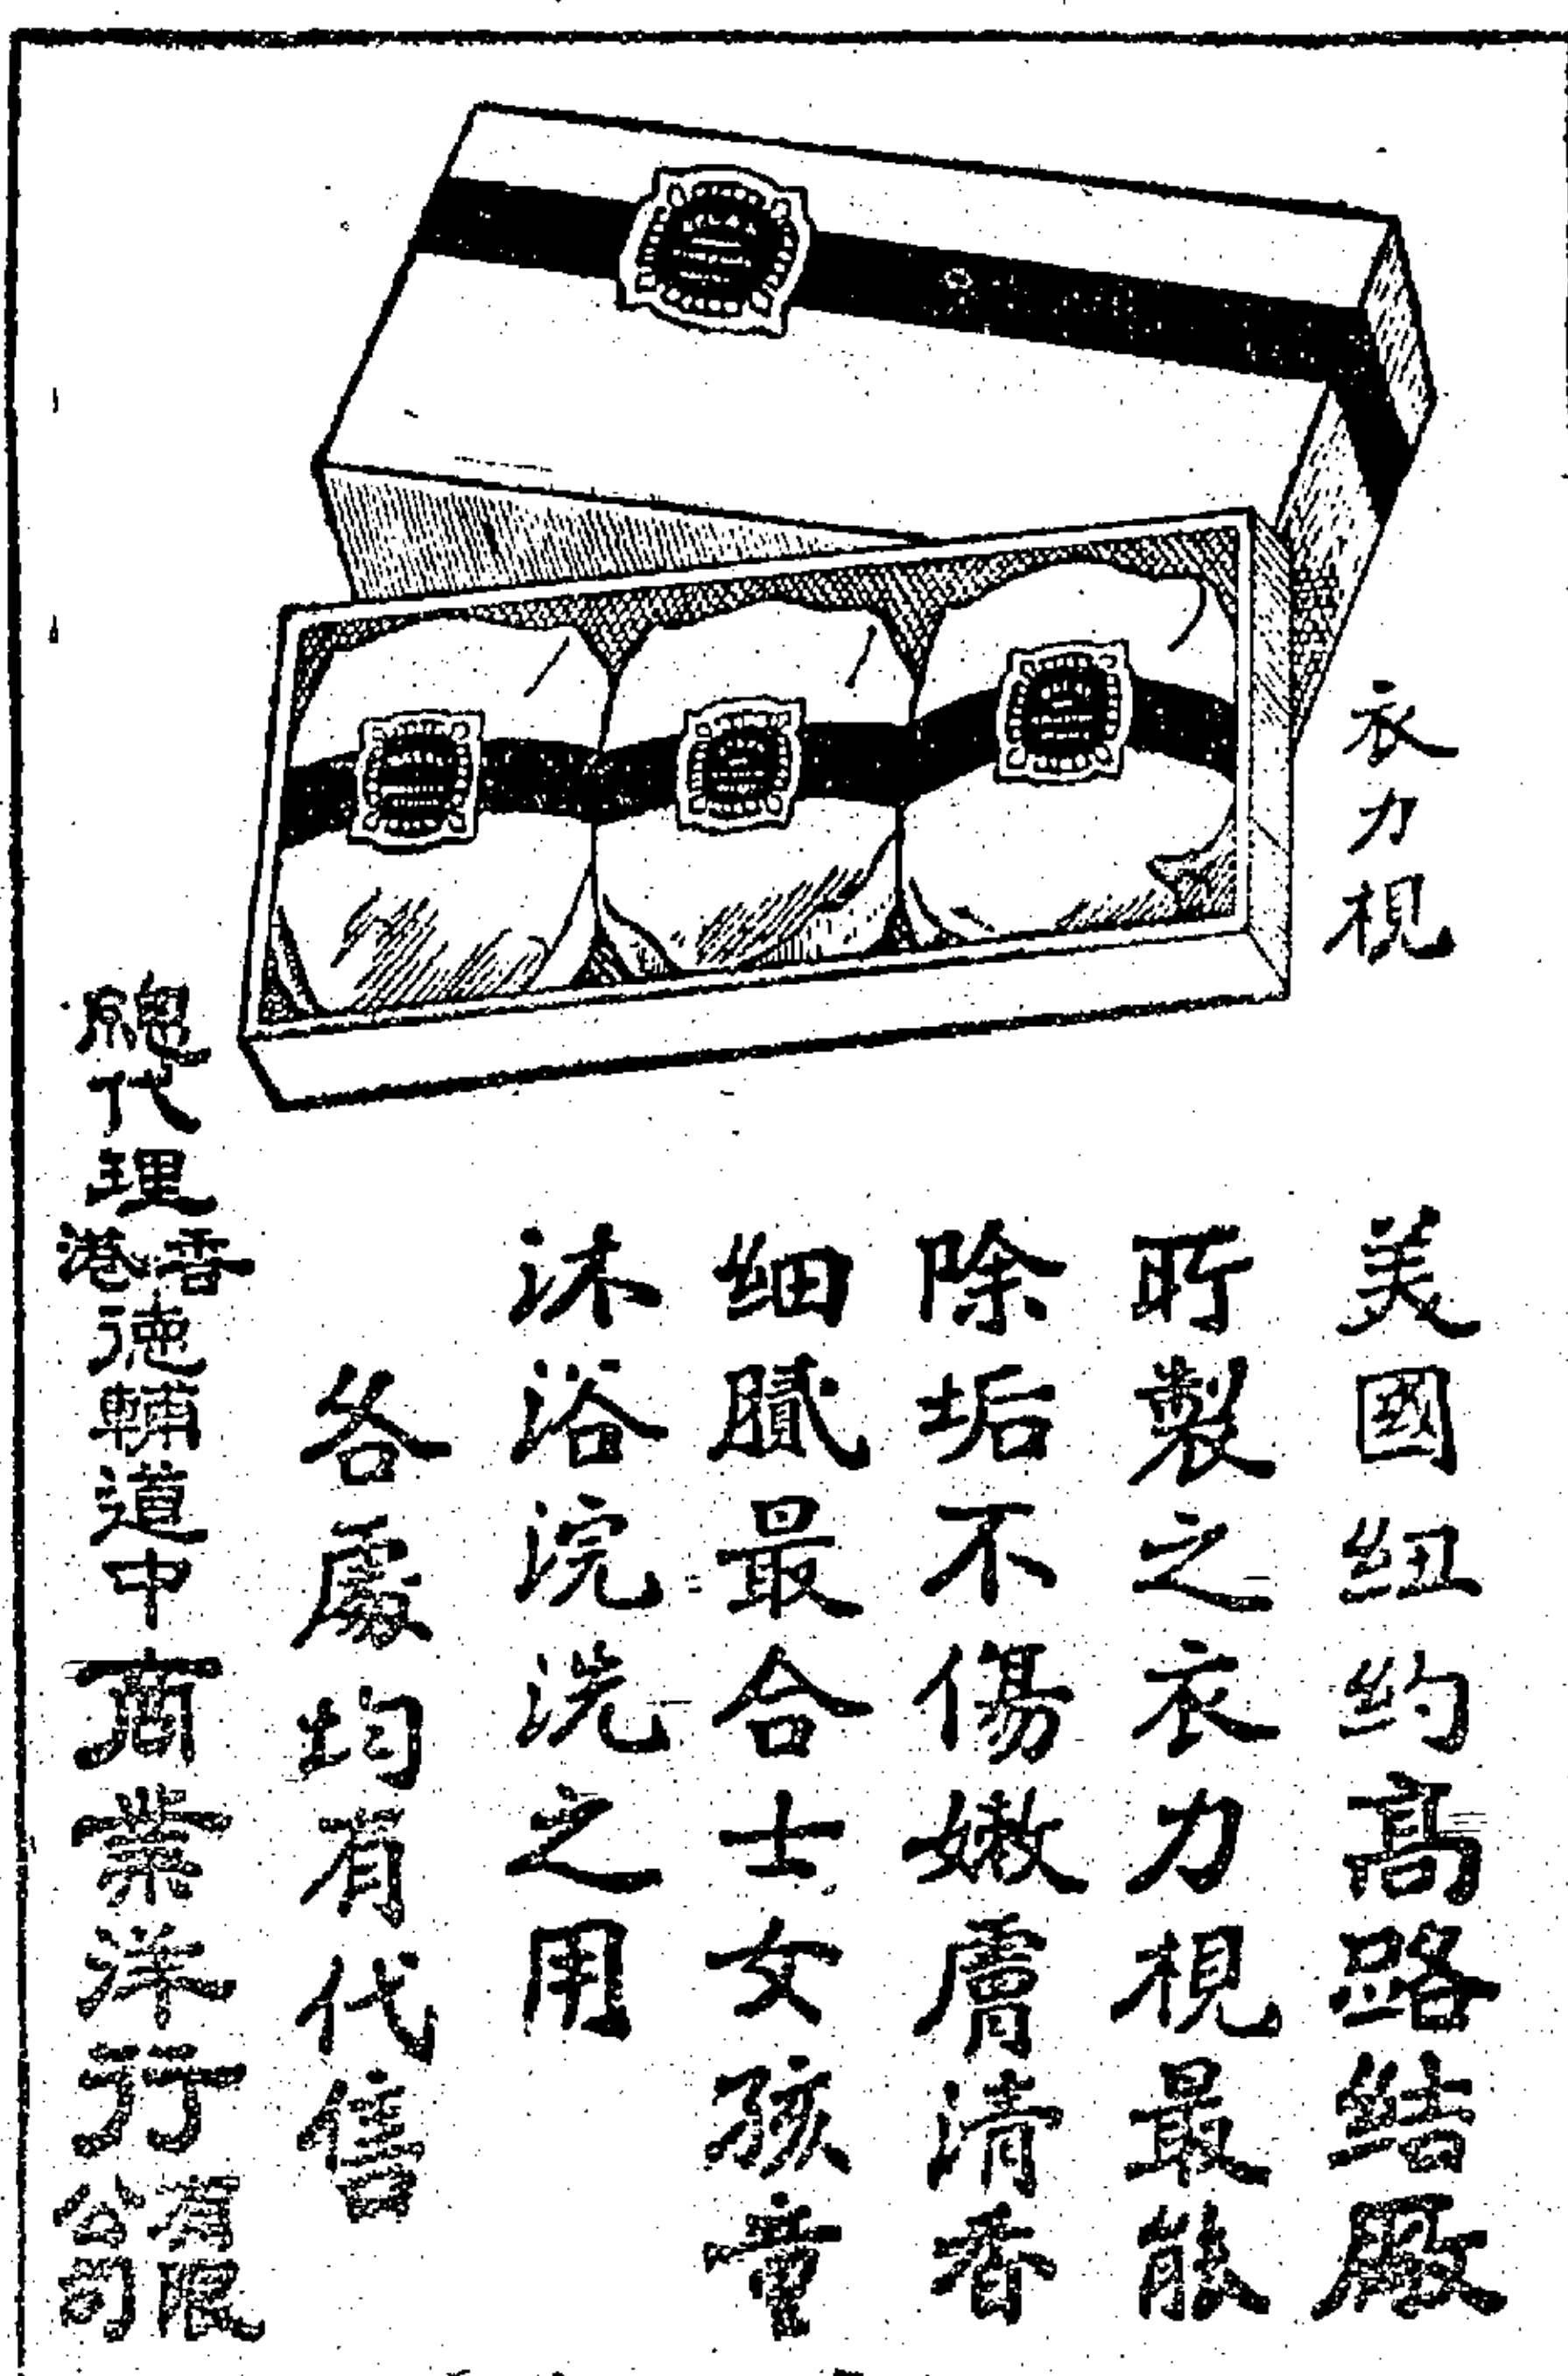 衣力梘
美國紐约高路结厰
所製之衣力梘最能
除垢不傷嫩膚清香
细膩最合士女孩童
沐浴浣洗之用
各處均有代售
總代理香港德輔道中商業洋行有限公司